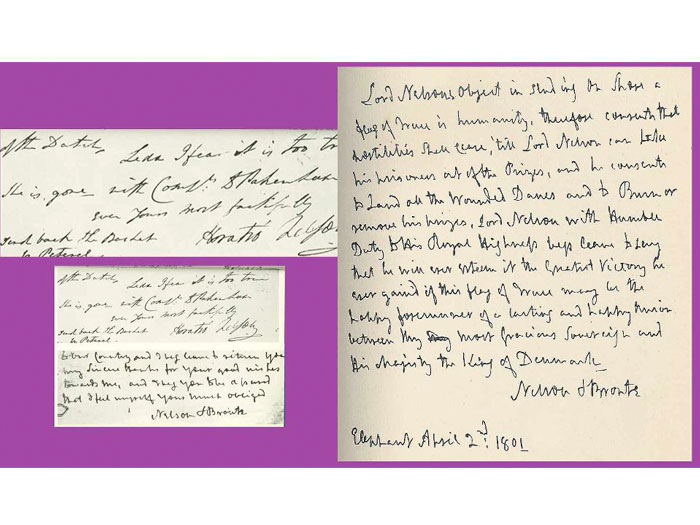 of the Dutch Leda I fear it is too
He is gone with
ever Yours most faithfully
send back the Basket Horatio Nelson
of the Dutch Leda I fear it is too
He is gone with
ever Yours most faithfully
send back the Basket Horatio Nelson
Country and I beg leave to return you
my sincere thanks for your good wishes
towards me, and I beg you
that I feel myself yours much obliged
Nelson & Bronte
Lord Nelsons object in sending on shore a
flag of truce is humanity, therefore consents that
hostilities shall cease, 'till Lord Nelson can take
his prisoners out of the Prizes, and he consents
to land all the wounded Danes and to Burn or
remove his prizes, Lord Nelson with Humble
Duty to His Royal Highness begs leave to say
that he will ever esteem it the Greatest Victory he
ever gained if this flag of truce may be the
happy forerunner of a lasting and happy Union
between my most Gracious Sovereign and
His Majesty the King of Denmark
Nelson & Bronte
Elephant April 2d: 1801